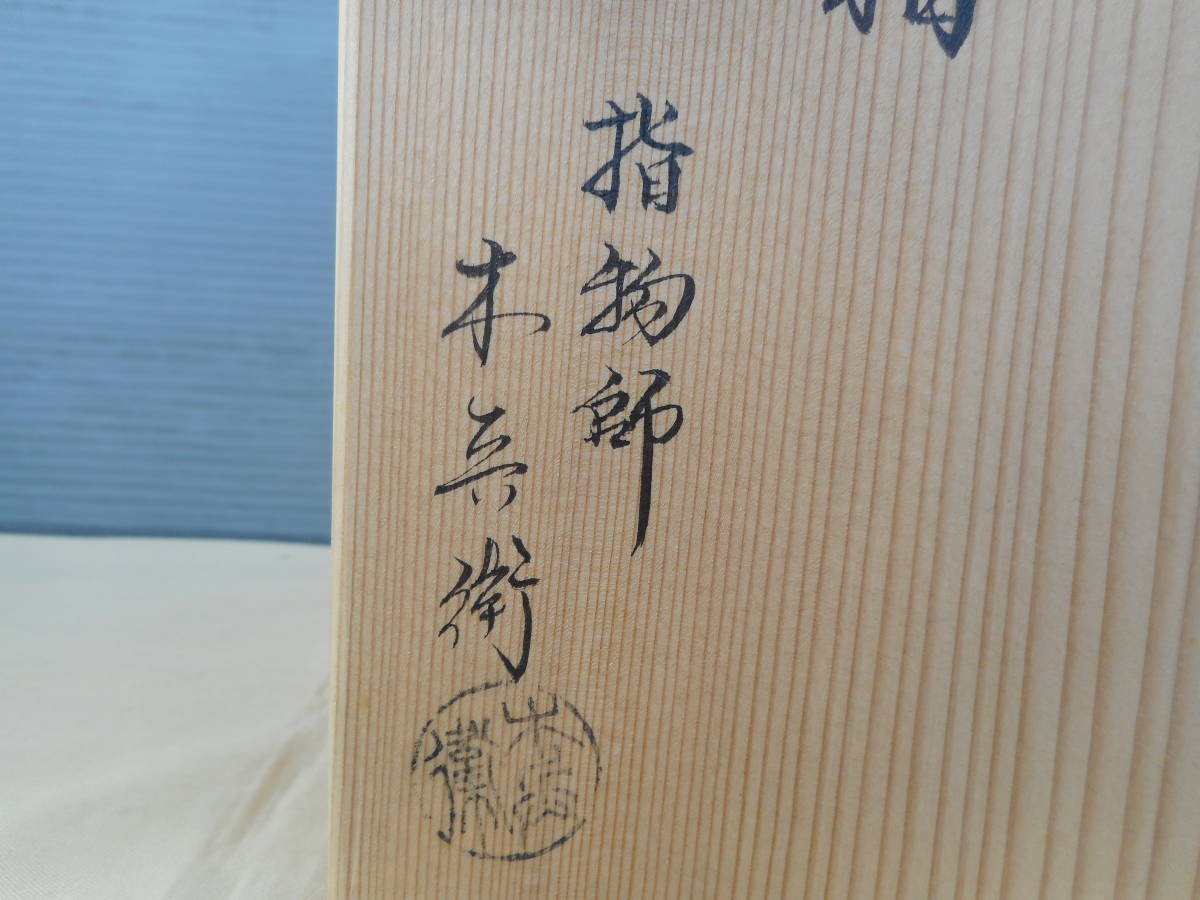 指物師
木兵衛
木兵衛